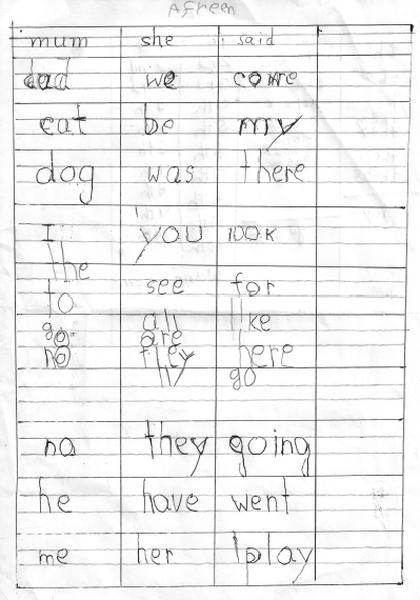 Afreen
mum she said
dad we come
cat be my
dog was there
I you look
the
to see for
all like
go are
no they here
ly go
no they going
he have went
me her play